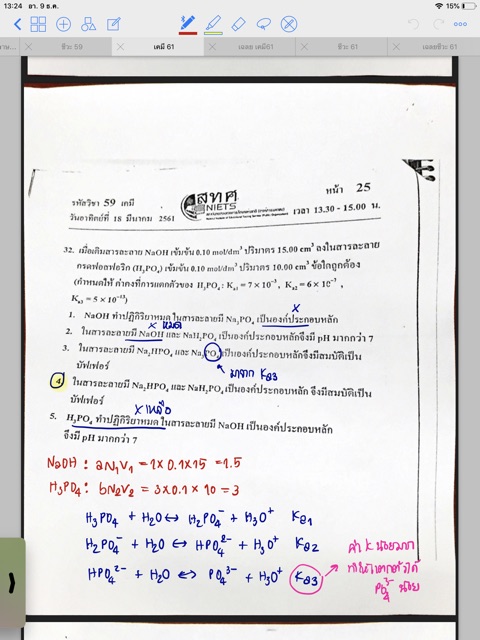 13:24 อา. 9 ธ.ค. 15%
ชีวะ 59 เคมี 61 เฉลย เคมี61 ชีวะ 61 เฉลยชีวะ 61
สทศ
NIETS
รหัสวิชา 59 เคมี หน้า 25
วันอาทิตย์ที่ 18 มีนาคม 2561 เวลา 13.30 - 15.00 น.
32. เมื่อเติมสารละลาย NaOH เข้มข้น 0.10 mol/dm³ ปริมาตร 15.00 cm³ ลงในสารละลาย
กรดฟอสฟอริก (H₃PO₄) เข้มข้น 0.10 mol/dm³ ปริมาตร 10.00 cm³ ข้อใดถูกต้อง
(กำหนดให้ ค่าคงที่การแตกตัวของ H₃PO₄ : Kₐ₁ = 7 × 10⁻³ , Kₐ₂ = 6 × 10⁻⁸ ,
Kₐ₃ = 5 × 10⁻¹³)
x
1. NaOH ทำปฏิกิริยาหมด ในสารละลายมี Na₃PO₄ เป็นองค์ประกอบหลัก
x หมด
2. ในสารละลายมี NaOH และ NaH₂PO₄ เป็นองค์ประกอบหลักจึงมี pH มากกว่า 7
3. ในสารละลายมี Na₂HPO₄ และ Na₃PO₄ เป็นองค์ประกอบหลักจึงมีสมบัติเป็น
บัฟเฟอร์
มาจาก Ka3
4. ในสารละลายมี Na₂HPO₄ และ NaH₂PO₄ เป็นองค์ประกอบหลัก จึงมีสมบัติเป็น
บัฟเฟอร์
x เหลือ
5. H₃PO₄ ทำปฏิกิริยาหมด ในสารละลายมี NaOH เป็นองค์ประกอบหลัก
จึงมี pH มากกว่า 7
NaOH : aN₁V₁ = 1 × 0.1 × 15 = 1.5
H₃PO₄ : bN₂V₂ = 3 × 0.1 × 10 = 3
H₃PO₄ + H₂O ↔ H₂PO₄⁻ + H₃O⁺ Ka1
H₂PO₄⁻ + H₂O ↔ HPO₄²⁻ + H₃O⁺ Ka2
HPO₄²⁻ + H₂O ↔ PO₄³⁻ + H₃O⁺ Ka3
ค่า K น้อยมาก
PO₄³⁻ น้อย